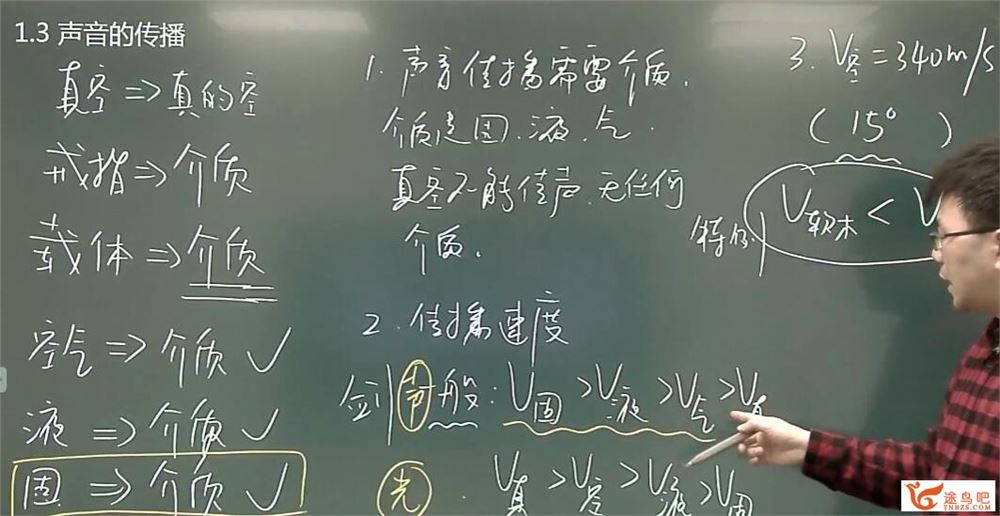 1.3 声音的传播
真空⇒真的空
戒指⇒介质
载体⇒介质
空气⇒介质✓
液⇒介质✓
固⇒介质✓
1. 声音传播需要介质.
介质是固.液.气.
真空不能传声.无任何
介质.
2. 传播速度
声 般: V固>V液>V气>V真
光. V真>V空>V液>V固
3. V空=340m/s
(15°)
特例 V软木< V
途鸟吧
TNBZS.COM